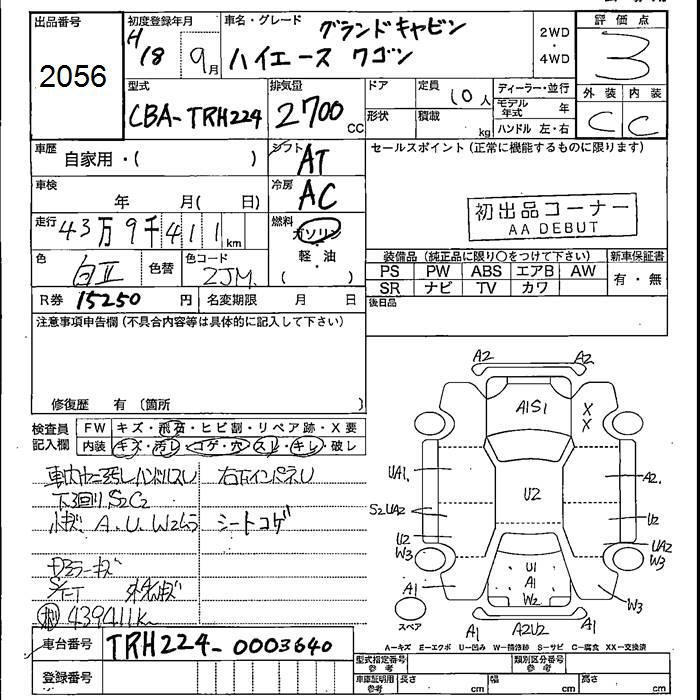 出品番号
2056
初度登録年月
H18 9月
車名・グレード
グランドキャビン
ハイエース ワゴン
2WD
・
4WD
評価点
3
外装 内装
C C
型式
CBA-TRH224
排気量
2700cc
ドア
定員
10人
形状
積載
kg
ディーラー・並行
モデル年式 年
ハンドル 左・右
車歴
自家用・( )
シフト
AT
セールスポイント(正常に機能するものに限ります)
車検
年 月( 日)
冷房
AC
初出品コーナー
AA DEBUT
走行
43万9千411km
燃料
ガソリン
軽・油
( )
色
白Ⅱ
色替
色コード
2JM
装備品(純正品に限り○をつけて下さい)
新車保証書
PS PW ABS エアB AW
SR ナビ TV カワ
有・無
R券 15250円
名変期限 月 日
後日品
注意事項申告欄(不具合内容等は具体的に記入して下さい)
修復歴 有 〔箇所 〕
検査員記入欄
FW キズ・飛石・ヒビ割・リペア跡・X要
内装 キズ・汚し・コゲ・穴・スレ・キレ・破し
下回りS2C2
小キズ A.U.W2
シートコゲ
439411K
車台番号
TRH224-0003640
登録番号
A2
A2
A1S1
X
X
UA1
A2
S2UA2
U2
U2
U2
UA2
W3
W3
U1
A1
W2
A1
W3
スペア
A1
A2U2
A1
A-キズ E-エクボ U-凹み W-補修跡 S-サビ C-腐食 XX-交換済
型式指定番号
参考
類別区分番号
参考
車庫証明用
参考
長さ cm
幅 cm
高さ cm